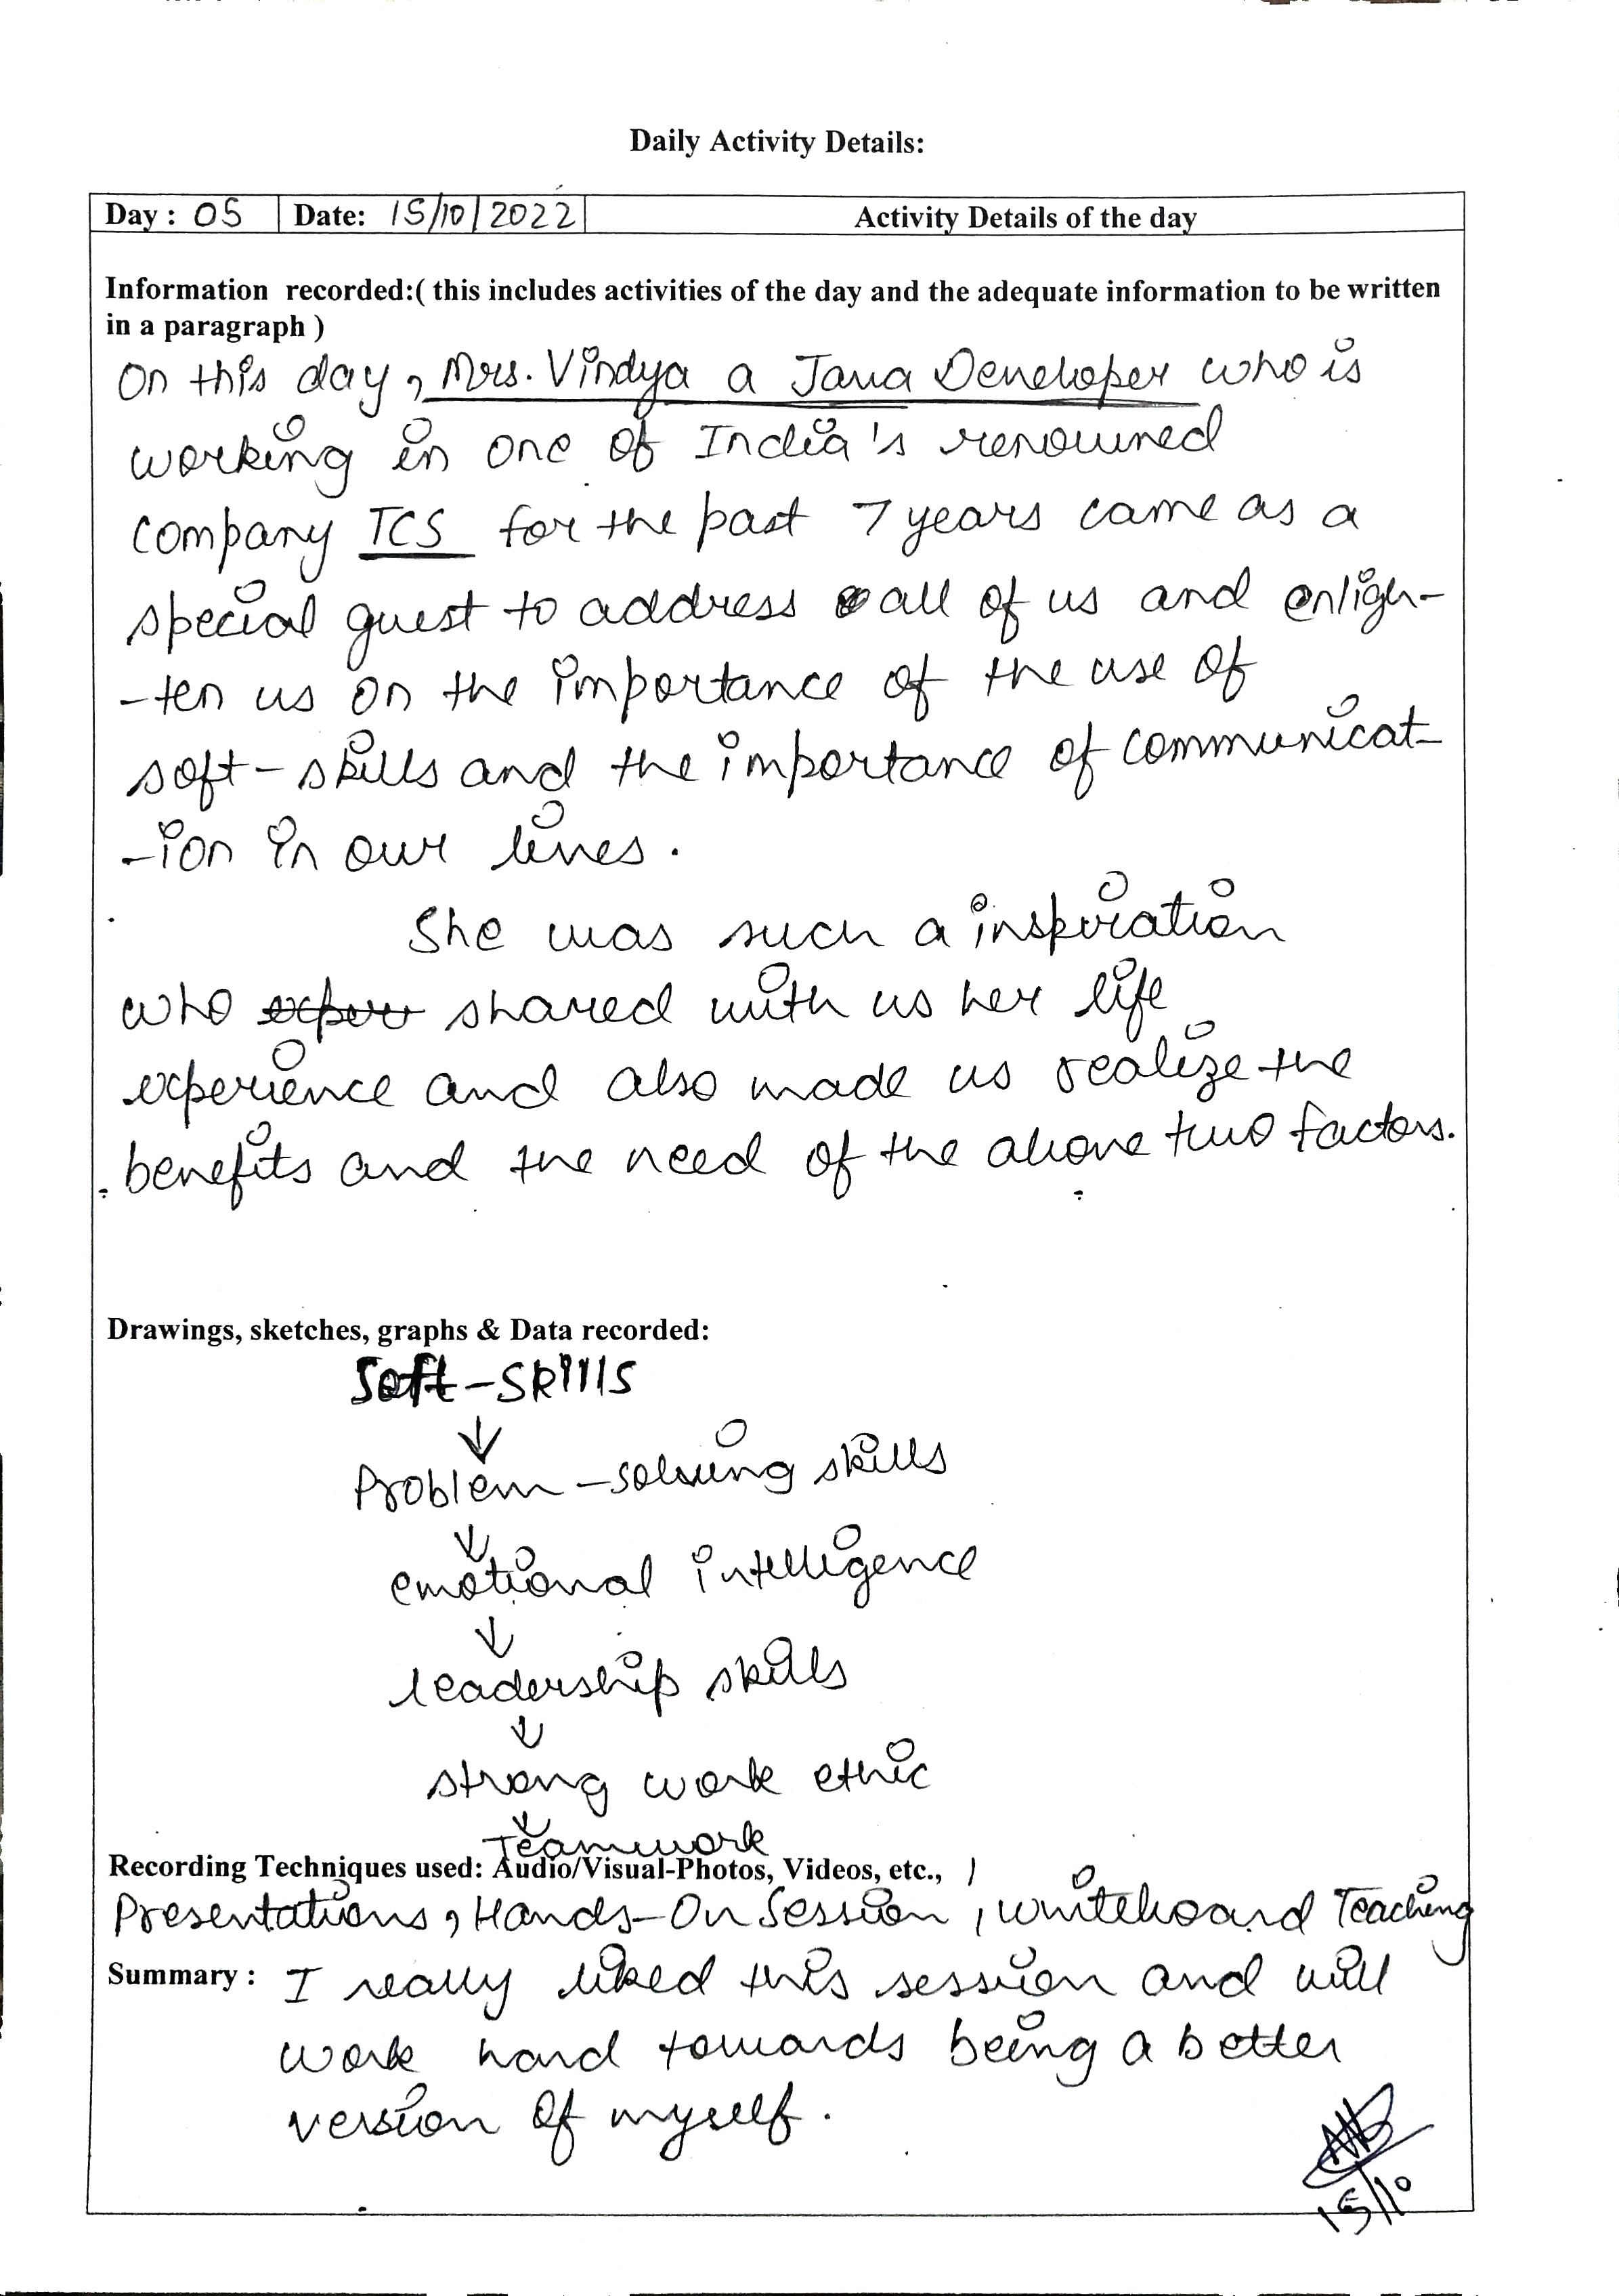 Daily Activity Details:
Day : 05 Date: 15/10/2022 Activity Details of the day
Information recorded:( this includes activities of the day and the adequate information to be written
in a paragraph )
On this day, Mrs. Vindya a Java Developer who is
working in one of India's renowned
company TCS for the past 7 years came as a
special guest to address all of us and enligh-
-ten us on the importance of the use of
soft-skills and the importance of communicat-
-ion in our lives.
She was such a inspiration
who shared with us her life
experience and also made us realize the
benefits and the need of the above two factors.
Drawings, sketches, graphs & Data recorded:
Soft-Skills
↓
Problem-solving skills
↓
emotional intelligence
↓
leadership skills
↓
strong work ethic
↓
Teamwork
Recording Techniques used: Audio/Visual-Photos, Videos, etc.,
Presentations, Hands-On Session, whiteboard Teaching
Summary : I really liked this session and will
work hard towards being a better
version of myself.
15/10